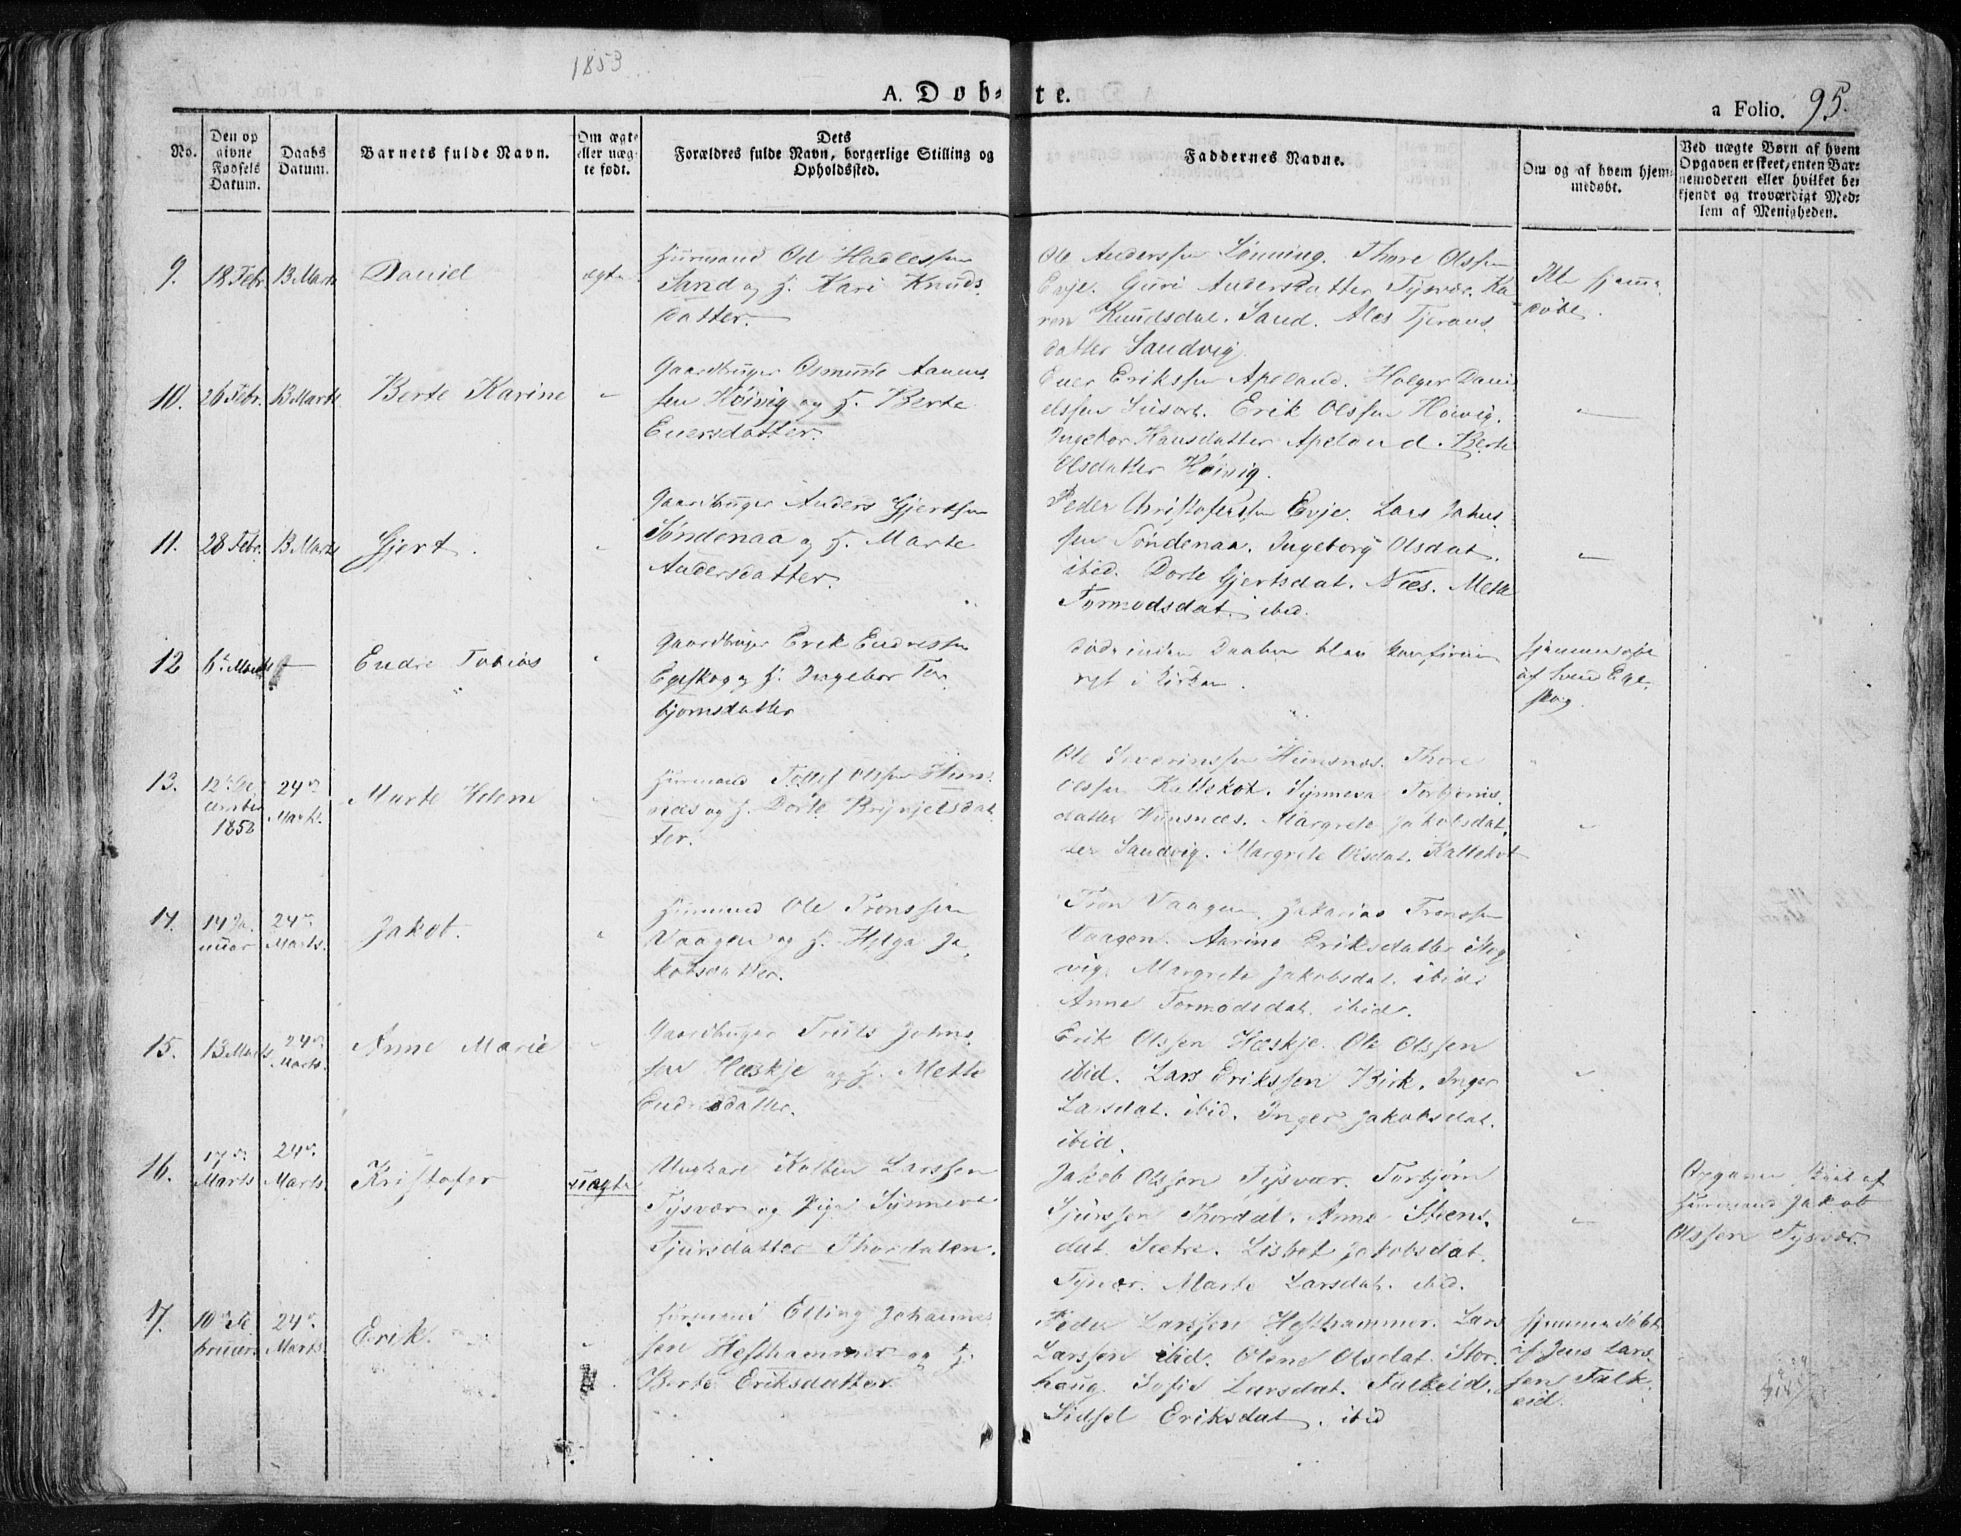 1853
A. Døb-te.
a Folio. 95.
No.
Den op
givne
Fødsels
Datum.
Daabs
Datum.
Barnets fulde Navn.
Om ægte
eller uæg-
te født.
Dets
Forældres fulde Navn, borgerlige Stilling og
Opholdssted.
Faddernes Navne.
Om og af hvem hjem-
medøbt.
Ved uægte Børn af hvem
Opgaven er skeet, enten Bar-
nemoderen eller hvilket be-
kjendt og troværdigt Med-
lem af Menigheden.
9. 18 Febr. 13 Marts Daniel ægte
Huusmand Od Hadlessen
Sand og H. Kari Knuds
datter.
Ole Anderssen Lønning. Thore Olssen
Evje. Guri Andersdatter Tysvær. Ka
ren Knudsdat. Sand. Ales Tjerans
datter Sandvig.
hjemme
døbt.
10. 26 Febr. 13 Marts Berte Karine "
Gaardbruger Osmund Aanen
sen Høivig og H. Berte
Enersdatter.
Ener Erikssen Apeland. Holger Dani
elssen Susort. Erik Olssen Høivig.
Ingebor Hansdatter Apeland. Berte
Olsdatter Høivig.
11. 28 Febr. 13 Marts Gjert. "
Gaardbruger Anders Gjertssen
Søndenaa og H. Marte
Andersdatter.
Peder Christoferssen Evje. Lars Johns
sen Søndenaa. Ingeborg Olsdat.
ibid. Dorte Gjertsdat. Næs. Mette
Tormodsdat. ibid.
12 6te Marts Endre Tobias "
Gaardbruger Erik Endressen
Egeskog og H. Ingebor Tor
bjornsdatter
døde inden Daaben blev konfirme
ret i Kirken.
hjemmedøbt
af Svend Ege
skog.
13. 12te De
cember
1852 24de
Marts. Marte Helene "
Huusmand Tollef Olssen Huns
næs og H. Dorte Brynjelsdat
ter.
Ole Severinssen Hunsnæs. Thore
Olssen Kattekot. Synneva Torbjørns
datter Hunsnæs. Margrete Jakobsdat
ter Sandvig. Margrete Olsdat. Kattekot
14. 14 Ja
nuar 24de
Marts. Jakob. "
Huusmand Ole Tronssen
Vaagen og H. Helga Ja
kobsdatter.
Tron Vaagen. Zakarias Tronssen
Vaagen. Aarine Eriksdatter
vig. Margrete Jakobsdat. ibid.
Anne Tormodsdat. ibid.
15. 13 Marts 24de
Marts. Anne Marie "
Gaardbruger Truls Johns
sen Hæskje og H. Mette
Endresdatter.
Erik Olssen Hæskje. Ole Olssen
ibid. Lars Erikssen Birk. Inger
Larsdat. ibid. Inger Jakobsdat.
ibid.
16. 17de
Marts 24de
Marts. Kristofer uægte
Ungkarl Larssen
Tysvær og Pige Synneva
Sjursdatter Thordalen.
Jakob Olssen Tysvær. Torbjørn
Sjurssen Thordal. Anne Steens
dat. Sætre. Lisbet Jakobsdat.
Tysvær. Marte Larsdat. ibid.
Opgaven skeet af
Huusmand Jakob
Olssen Tysvær.
17. 10de Fe
bruar 24de
Marts Erik. "
Huusmand Elling Johannes
sen Hesthammer og H.
Berte Eriksdatter
Peder Larssen Hesthammer. Lars
Larssen ibid. Olene Olsdat. Stor
houg. Sofie Larsdat. Falkeid.
Sidsel Eriksdat. ibid
hjemmedøbt
af Jens Lars
sen Falk
eid.